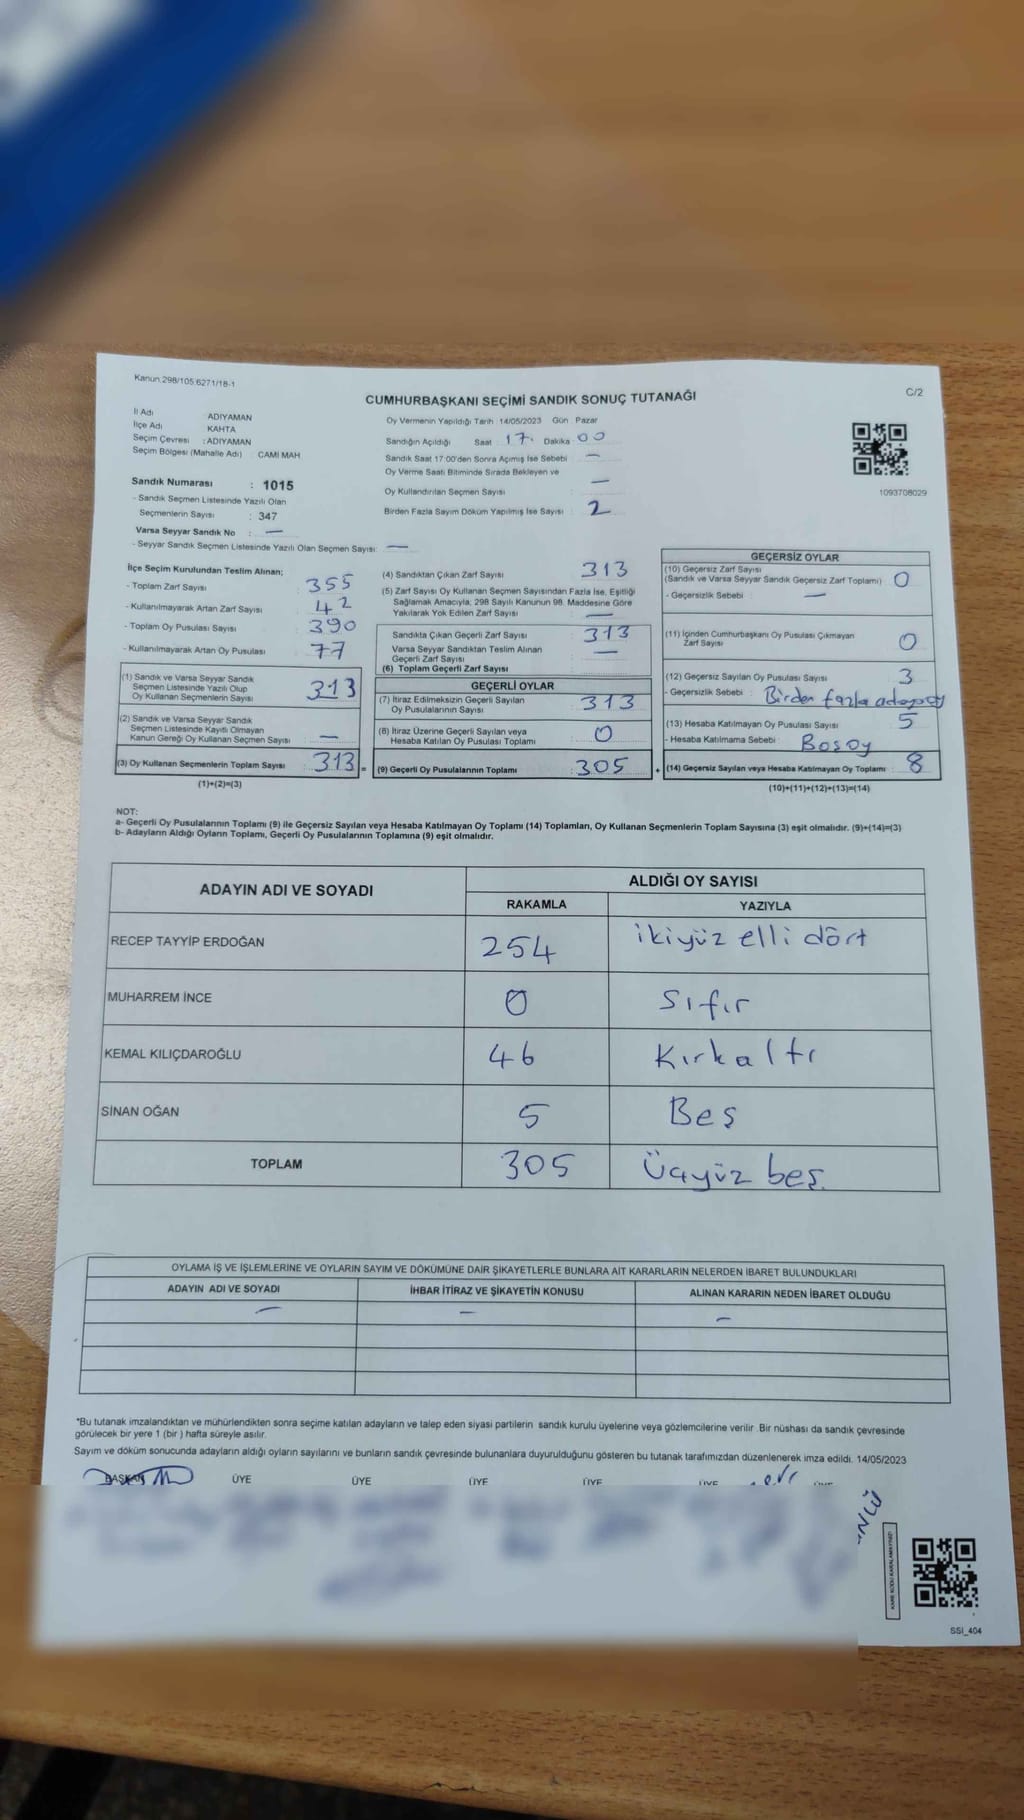 Kanun.298/105.6271/18-1
C/2
CUMHURBAŞKANI SEÇİMİ SANDIK SONUÇ TUTANAĞI
İl Adı : ADIYAMAN
İlçe Adı : KAHTA
Seçim Çevresi : ADIYAMAN
Seçim Bölgesi (Mahalle Adı) : CAMI MAH
Oy Vermenin Yapıldığı Tarih : 14/05/2023 Gün : Pazar
Sandığın Açıldığı Saat : 17. Dakika : 00
Sandık Saat 17:00'den Sonra Açımış İse Sebebi : —
Oy Verme Saati Bitiminde Sırada Bekleyen ve
Oy Kullandırılan Seçmen Sayısı : —
Birden Fazla Sayım Döküm Yapılmış İse Sayısı : 2
1093708029
Sandık Numarası : 1015
- Sandık Seçmen Listesinde Yazılı Olan
Seçmenlerin Sayısı : 347
Varsa Seyyar Sandık No : —
- Seyyar Sandık Seçmen Listesinde Yazılı Olan Seçmen Sayısı: —
İlçe Seçim Kurulundan Teslim Alınan;
- Toplam Zarf Sayısı : 355
- Kullanılmayarak Artan Zarf Sayısı : 42
- Toplam Oy Pusulası Sayısı : 390
- Kullanılmayarak Artan Oy Pusulası : 77
(1) Sandık ve Varsa Seyyar Sandık
Seçmen Listesinde Yazılı Olup
Oy Kullanan Seçmenlerin Sayısı : 313
(2) Sandık ve Varsa Seyyar Sandık
Seçmen Listesinde Kayıtlı Olmayan
Kanun Gereği Oy Kullanan Seçmen Sayısı : —
(3) Oy Kullanan Seçmenlerin Toplam Sayısı : 313 =
(1)+(2)=(3)
(4) Sandıktan Çıkan Zarf Sayısı : 313
(5) Zarf Sayısı Oy Kullanan Seçmen Sayısından Fazla İse, Eşitliği
Sağlamak Amacıyla; 298 Sayılı Kanunun 98. Maddesine Göre
Yakılarak Yok Edilen Zarf Sayısı : —
Sandıkta Çıkan Geçerli Zarf Sayısı : 313
Varsa Seyyar Sandıktan Teslim Alınan
Geçerli Zarf Sayısı : —
(6) Toplam Geçerli Zarf Sayısı
GEÇERLİ OYLAR
(7) İtiraz Edilmeksizin Geçerli Sayılan
Oy Pusulalarının Sayısı : 313
(8) İtiraz Üzerine Geçerli Sayılan veya
Hesaba Katılan Oy Pusulası Toplamı : 0
(9) Geçerli Oy Pusulalarının Toplamı : 305 +
GEÇERSİZ OYLAR
(10) Geçersiz Zarf Sayısı
(Sandık ve Varsa Seyyar Sandık Geçersiz Zarf Toplamı) : 0
- Geçersizlik Sebebi : —
(11) İçinden Cumhurbaşkanı Oy Pusulası Çıkmayan
Zarf Sayısı : 0
(12) Geçersiz Sayılan Oy Pusulası Sayısı : 3
- Geçersizlik Sebebi : Birden fazla
(13) Hesaba Katılmayan Oy Pusulası Sayısı : 5
- Hesaba Katılmama Sebebi : Boş oy
(14) Geçersiz Sayılan veya Hesaba Katılmayan Oy Toplamı : 8
(10)+(11)+(12)+(13)=(14)
NOT:
a- Geçerli Oy Pusulalarının Toplamı (9) ile Geçersiz Sayılan veya Hesaba Katılmayan Oy Toplamı (14) Toplamları, Oy Kullanan Seçmenlerin Toplam Sayısına (3) eşit olmalıdır. (9)+(14)=(3)
b- Adayların Aldığı Oyların Toplamı, Geçerli Oy Pusulalarının Toplamına (9) eşit olmalıdır.
ADAYIN ADI VE SOYADI
ALDIĞI OY SAYISI
RAKAMLA YAZIYLA
RECEP TAYYİP ERDOĞAN 254 ikiyüz elli dört
MUHARREM İNCE 0 Sıfır
KEMAL KILIÇDAROĞLU 46 Kırkaltı
SİNAN OĞAN 5 Beş
TOPLAM 305 Üçyüz beş.
OYLAMA İŞ VE İŞLEMLERİNE VE OYLARIN SAYIM VE DÖKÜMÜNE DAİR ŞİKAYETLERLE BUNLARA AİT KARARLARIN NELERDEN İBARET BULUNDUKLARI
ADAYIN ADI VE SOYADI İHBAR İTİRAZ VE ŞİKAYETİN KONUSU ALINAN KARARIN NEDEN İBARET OLDUĞU
— — —
*Bu tutanak imzalandıktan ve mühürlendikten sonra seçime katılan adayların ve talep eden siyasi partilerin sandık kurulu üyelerine veya gözlemcilerine verilir. Bir nüshası da sandık çevresinde
görülecek bir yere 1 (bir) hafta süreyle asılır.
Sayım ve döküm sonucunda adayların aldığı oyların sayılarını ve bunların sandık çevresinde bulunanlara duyurulduğunu gösteren bu tutanak tarafımızdan düzenlenerek imza edildi. 14/05/2023
BAŞKAN ÜYE ÜYE ÜYE ÜYE ÜYE
KARE KODU KARALAMAYINIZ!
SSI_404